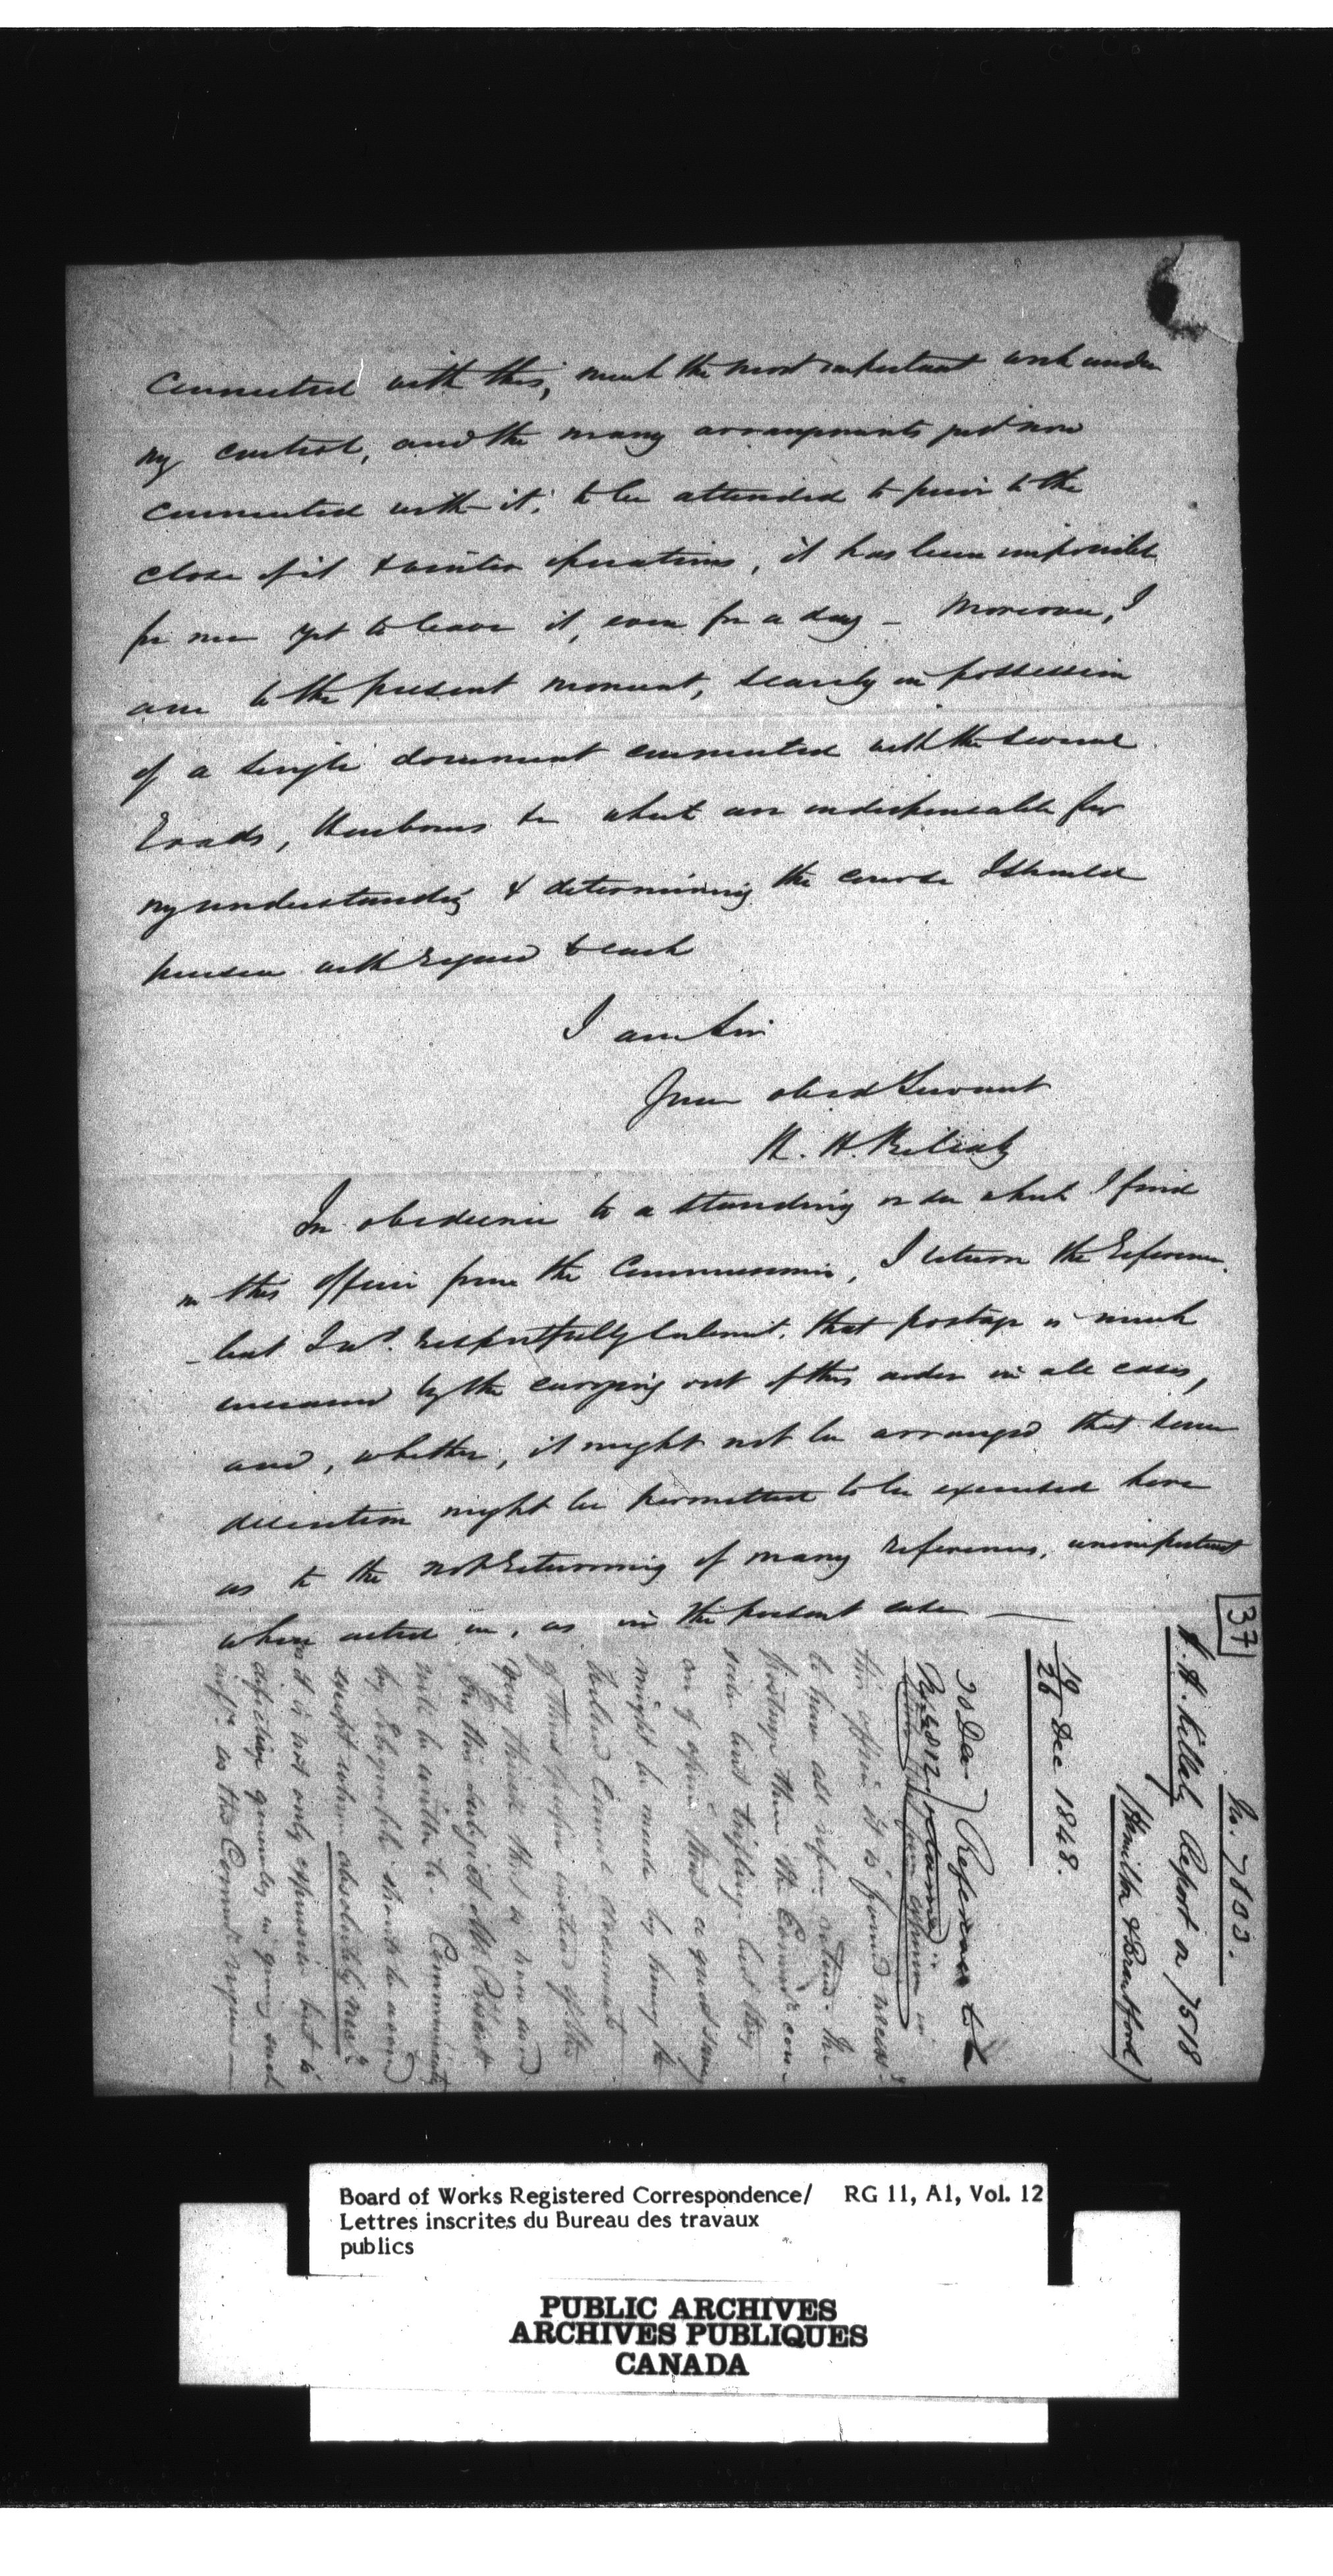 connected with this, much the most important work under
my control, and the many arrangements just now
connected with it, to be attended to prior to the
close of it & winter operations, it has been impossible
for me yet to leave it, even for a day – Moreover, I
am to the present moment, scarcely in possession
of a single document connected with the several
Roads, Harbours &c which are indispensable for
my understanding & determining the course I should
pursue with regard to each
I am Sir
Your obed Servant
H. H. Killaly
In obedience to a standing order which I find
in this office from the Commissioners, I return the Reference
– but I wd. respectfully submit, that postage is much
increased by the carrying out of this order in all cases,
and, whether, it might not be arranged that some
discretion might be permitted to be exercised here
as to the not returning of many references, unimportant
when acted on, as in the present case —
37
No. 7803.
H. H. Killaly Report on 7518
(Hamilton & Brantford)
19/26 Dec 1848.
30 Dec Reference to be
returned
this office it is found necessy
to have all references retund. The
postage thro' the Comrs con-
sider but trifling – but they
are of opinion that a great saving
might be made by having the
Welland Canal documents
of this
very thick that is now used
On this subject Mr President
will be written to. Communicate
by Telegraph should be avoided
except when absolutely necy
as it is not only expensive but is
defective generally in giving such
infn. as the Commrs require —
Board of Works Registered Correspondence/ RG 11, A1, Vol. 12
Lettres inscrites du Bureau des travaux
publics
PUBLIC ARCHIVES
ARCHIVES PUBLIQUES
CANADA